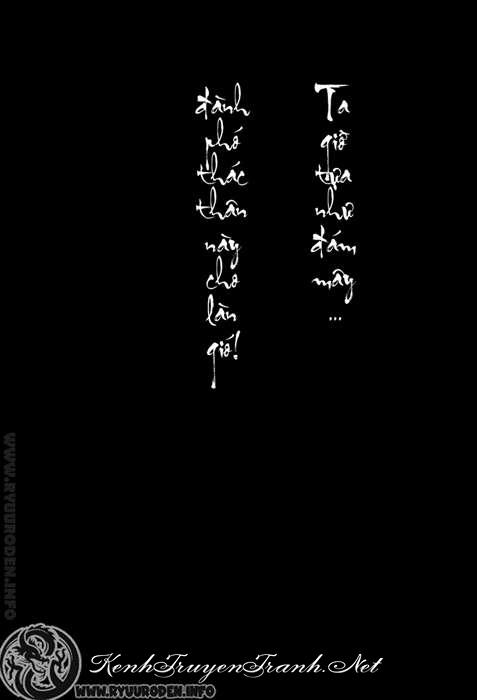 Ta
giờ
tựa
như
đám
mây
...
đành
phó
thác
thân
này
cho
làn
gió!
WWW.RYUURODEN.INFO
KenhTruyenTranh.Net
WWW.RYUURODEN.INFO